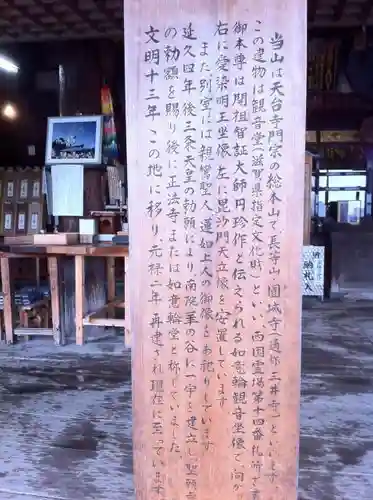 当山は天台寺門宗の総本山で、長等山 園城寺(通称 三井寺)といいます。
この建物は観音堂(滋賀県指定文化財)といい、西国霊場第十四番札所で
御本尊は開祖智証大師円珍作と伝えられる如意輪観音坐像で、向か
右に愛染明王坐像 左に毘沙門天立像を安置しています。
また別室には親鸞聖人 蓮如上人の御像をお祀りしています。
延久四年 後三条天皇の勅願により、南院の谷に一宇を建立し聖願寺
の勅額を賜り後に正法寺、または如意輪堂と称していました。
文明十三年 この地に移り元禄二年 再建され現在に至っています。
天皇勅願
納札